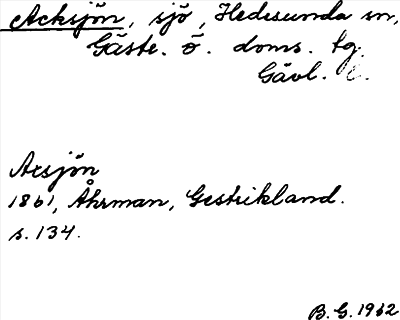 Acksjön, sjö, Hedesunda sn,
Gäste. ö. doms. tg.
Gävl. l.
Acsjön
1861, Åhrman, Gestrikland.
s. 134.
B.G. 1962